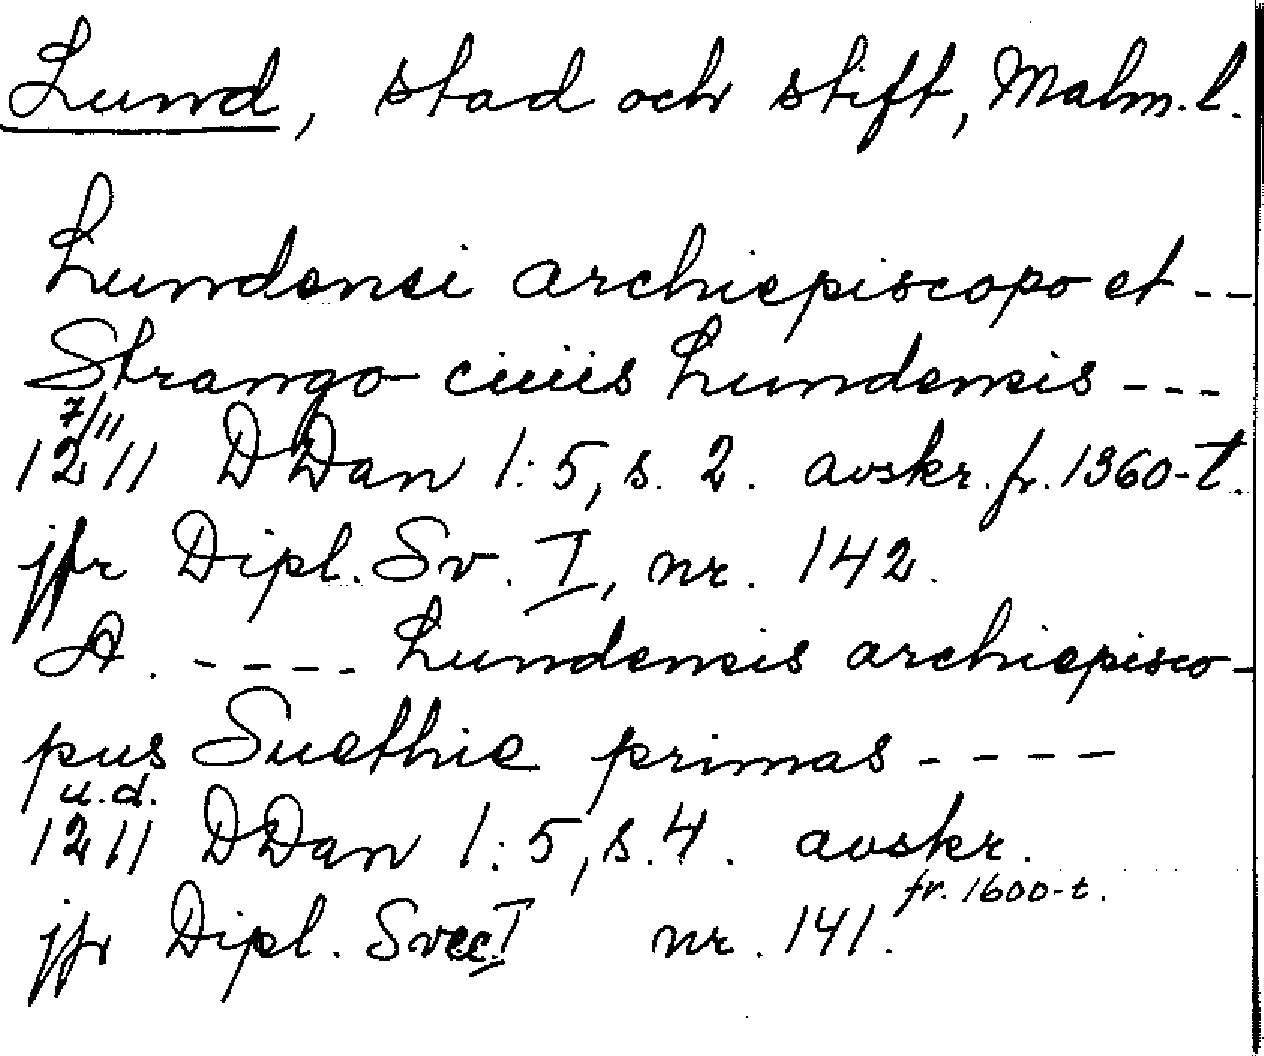 Lund, stad och stift, Malm. l.
Lundensi archiepiscopo et --
Strango ciuiis Lundensis ---
7/11
1211 DDan 1:5, s. 2. avskr. fr. 1360-t.
jfr Dipl. Sv. I, nr. 142.
A. ---- Lundensis archiepisco-
pus Suethie primas ----
u.d.
1211 DDan 1:5, s. 4. avskr.
fr. 1600-t.
jfr Dipl. Svec. I nr. 141.